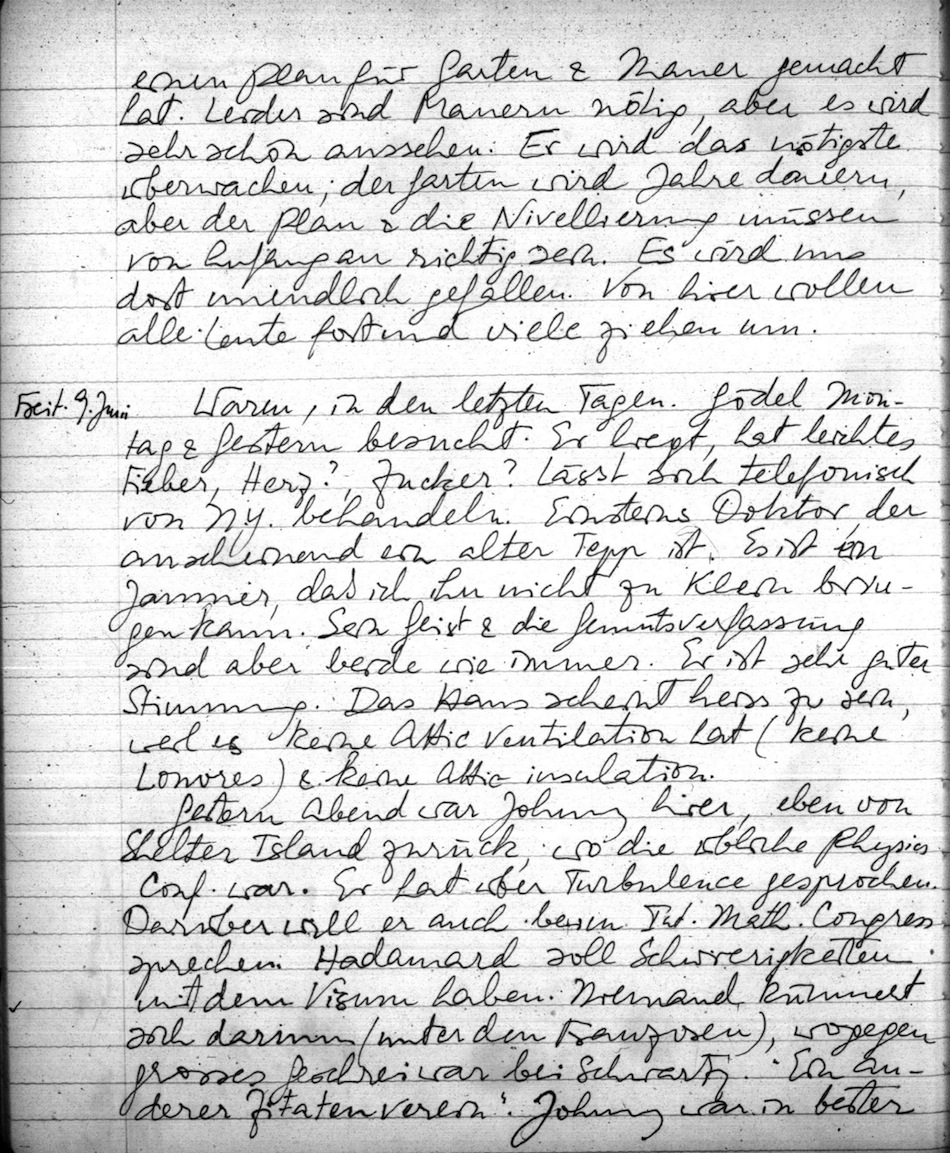 einen Plan für Garten & Mauer gemacht
hat. Leider sind Mauern nötig, aber es wird
sehr schön aussehen. Er wird das nötigste
überwachen; der Garten wird Jahre dauern,
aber der Plan & die Nivellierung müssen
von Anfang an richtig sein. Es wird uns
dort unendlich gefallen. Von hier wollen
alle Leute fort und viele ziehen um.
Freit. 9. Juni Warm, in den letzten Tagen. Gödel Mon-
tag & gestern besucht. Er liegt, hat leichtes
Fieber, Herz?, Zucker? Lässt sich telefonisch
von NY. behandeln. Einsteins Doktor, der
anscheinend ein alter Tepp ist. Es ist ein
Jammer, dass ich ihn nicht zu Klein brin-
gen kann. Sein Geist & die Gemütsverfassung
sind aber beide wie immer. Er ist sehr guter
Stimmung. Das Haus scheint heiss zu sein,
weil es keine Attic Ventilation hat (keine
Louvres) & keine Attic insulation.
Gestern Abend war Johnny hier, eben von
Shelter Island zurück, wo die übliche Physics
Conf. war. Er hat über Turbulence gesprochen.
Darüber will er auch beim Int. Math. Congress
sprechen. Hadamard soll Schwierigkeiten
mit dem Visum haben. Niemand kümmert
sich darum (unter den Franzosen), wogegen
grosses Geschrei war bei Schwartz. "Ein an-
derer Zitatenverein". Johnny war in bester